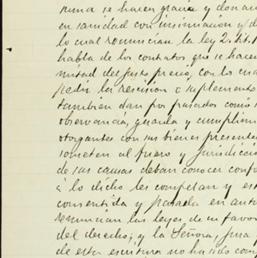 suma se hacen gracia y donac
en sanidad con insinuación y d
lo cual renuncian la ley 2ª tit.
habla de los contratos que se hacen
mitad del justo precio, con lo cua
pedir la rescision o suplemento
tambien dan por pasados como s
observancia, guarda y cumplim
otogantes con sus bienes presente
someten al fuero y jurisdicció
de sus causas deban conocer conf
a lo dicho les compelan y es
consentida y pasada en auto
renuncian las leyes de su favor
del derecho; y la Señora, jura p
de esta escritura no ha sido com